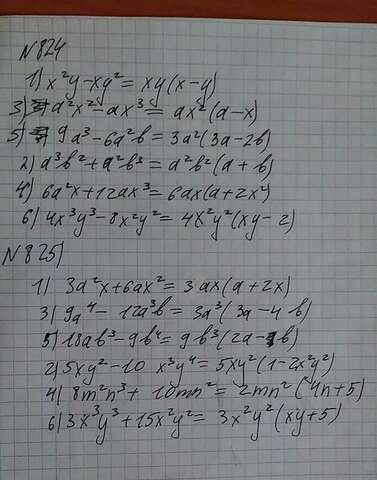 N824
1) x²y-xy² = xy(x-y)
3) a²x²-ax³ = ax²(a-x)
5) 9a³-6a²b = 3a²(3a-2b)
2) a³b²+a²b³ = a²b²(a+b)
4) 6a²x+12ax³ = 6ax(a+2x²)
6) 4x³y³-8x²y² = 4x²y²(xy-2)
N825)
1) 3a²x+6ax² = 3ax(a+2x)
3) 9a⁴-12a³b = 3a³(3a-4b)
5) 18ab³-9b⁴ = 9b³(2a-b)
2) 5xy²-10 x³y⁴ = 5xy²(1-2x²y²)
4) 8m²n³+10mn² = 2mn²(4n+5)
6) 3x³y³+15x²y² = 3x²y²(xy+5)